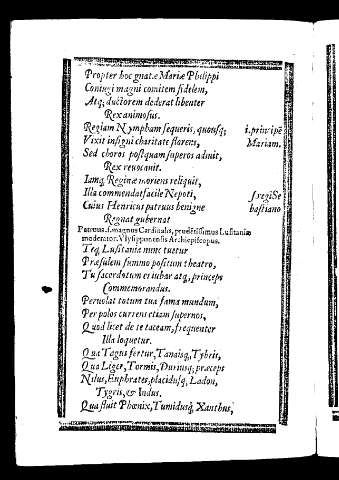 Propter hoc gnatæ Mariæ Philippi
Coniugi magni comitem fidelem,
Atq; ductorem dederat libenter
Rex animosus.
Regiam Nympham sequeris, quousq; i. principē
Vixit insigni charitate florens, Mariam.
Sed choros postquam superos adiuit,
Rex reuocauit.
Iamq; Reginæ moriens reliquit,
Illa commendat facile Nepoti, s. regi Se
Cuius Henricus patruus benigne bastiano
Regnat gubernat
Patruus. s. magnus Cardinalis, prudētissimus Lusitaniæ
moderator. Vlyssipponensis Archiepiscopus.
Teq; Lusitania nunc tuetur
Præsulem summo positum theatro,
Tu sacerdotum es iubar atq; princeps
Commemorandus.
Peruolat totum tua fama mundum,
Per polos current etiam supernos,
Quod licet de te taceam, frequenter
Illa loquetur.
Qua Tagus fertur, Tanaisq; Tybris,
Qua Liger, Tormis, Duriusq; præceps
Nilus, Euphrates, placidusq; Ladon,
Tygris, & Indus.
Qua fluit Phœnix, Tumidusq; Xanthus,